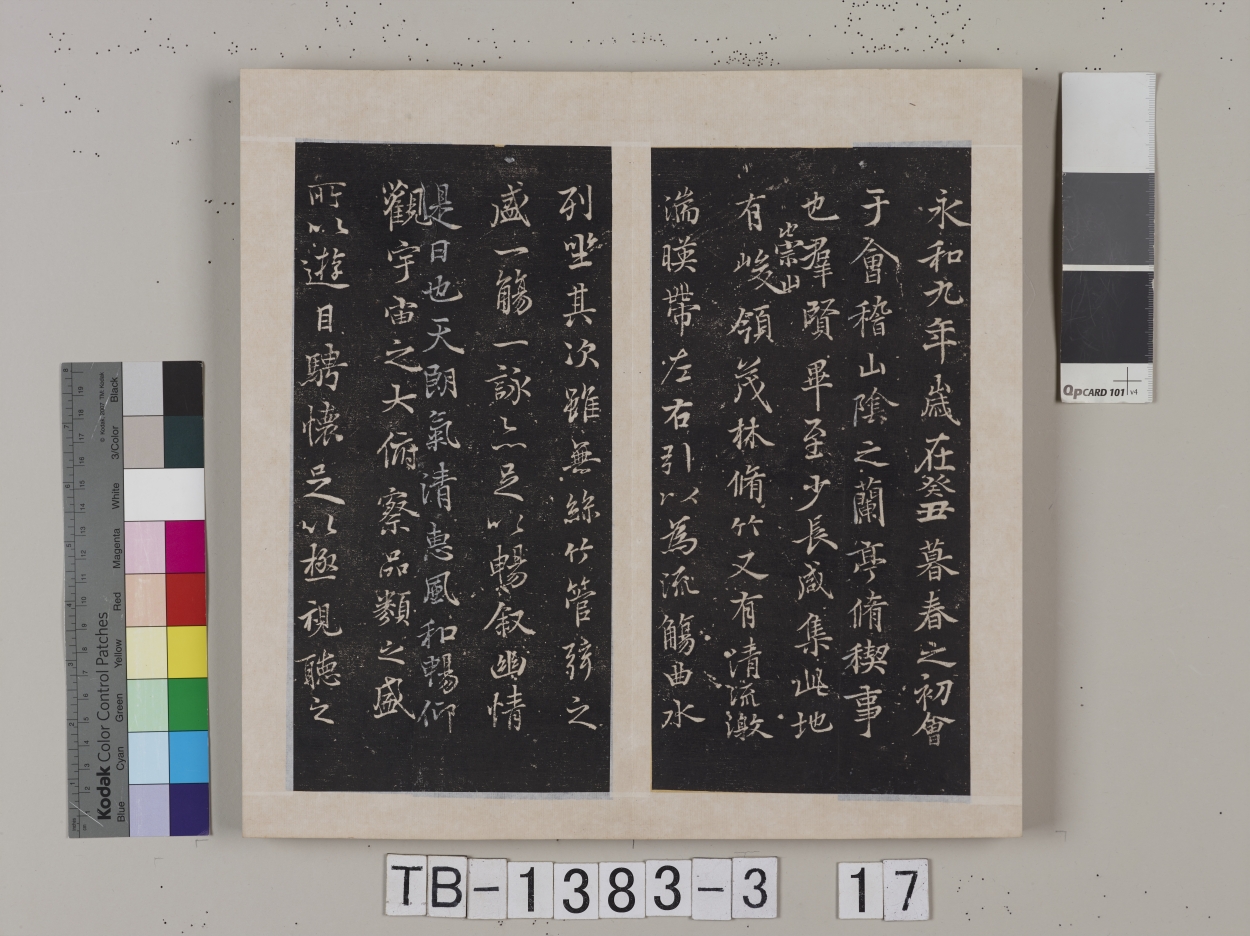 永和九年歲在癸丑暮春之初會
于會稽山陰之蘭亭脩稧事
也羣賢畢至少長咸集此地
有崇山峻領茂林脩竹又有清流激
湍暎帶左右引以為流觴曲水
列坐其次雖無絲竹管弦之
盛一觴一詠亦足以暢叙幽情
是日也天朗氣清惠風和暢仰
觀宇宙之大俯察品類之盛
所以遊目騁懷足以極視聽之
QpCARD 101 v4
Kodak Color Control Patches
Blue Cyan Green Yellow Red Magenta White 3/Color Black
TB-1383-3 17